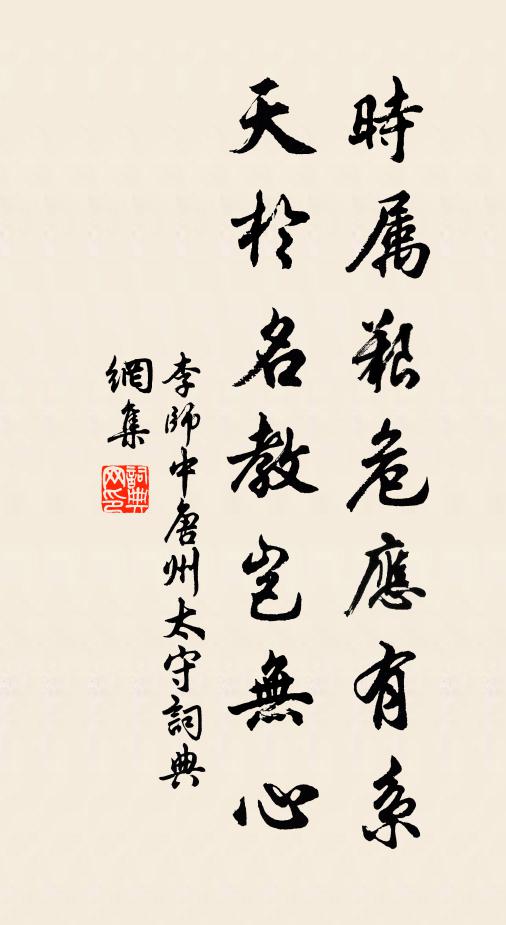 時属艱危應有系
天於名教豈無心
李師中唐州太守詞典
網集
詞典網印